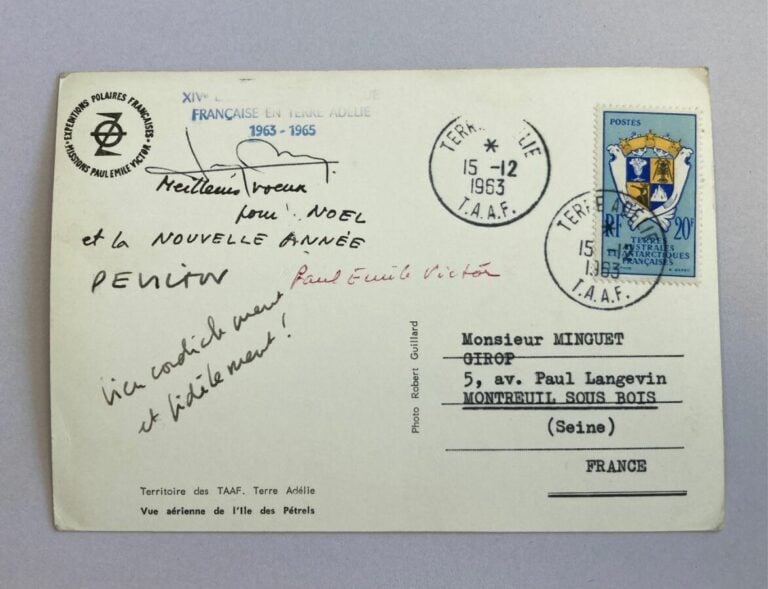 EXPEDITIONS POLAIRES FRANÇAISES
MISSIONS PAUL EMILE VICTOR
XIVe
FRANÇAISE EN TERRE ADELIE
1963-1965
Meilleurs voeux
pour NOEL
et la NOUVELLE ANNÉE
Paul Emile Victor
bien cordialement
et fidèlement!
TERRE ADELIE
15 -12
1963
T.A.A.F.
POSTES
RF 20F
TERRES
AUSTRALES
ET ANTARCTIQUES
FRANÇAISES
TERRE ADELIE
15 -12
1963
T.A.A.F.
Photo Robert Guillard
Monsieur MINGUET
GIROP
5, av. Paul Langevin
MONTREUIL SOUS BOIS
(Seine)
FRANCE
Territoire des TAAF. Terre Adélie
Vue aérienne de l'Ile des Pétrels